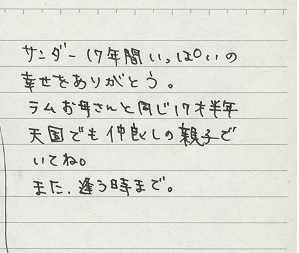 サンダー17年間いっぱいの
幸せをありがとう。
ラムお母さんと同じ17才半年
天国でも仲良しの親子で
いてね。
また、逢う時まで。